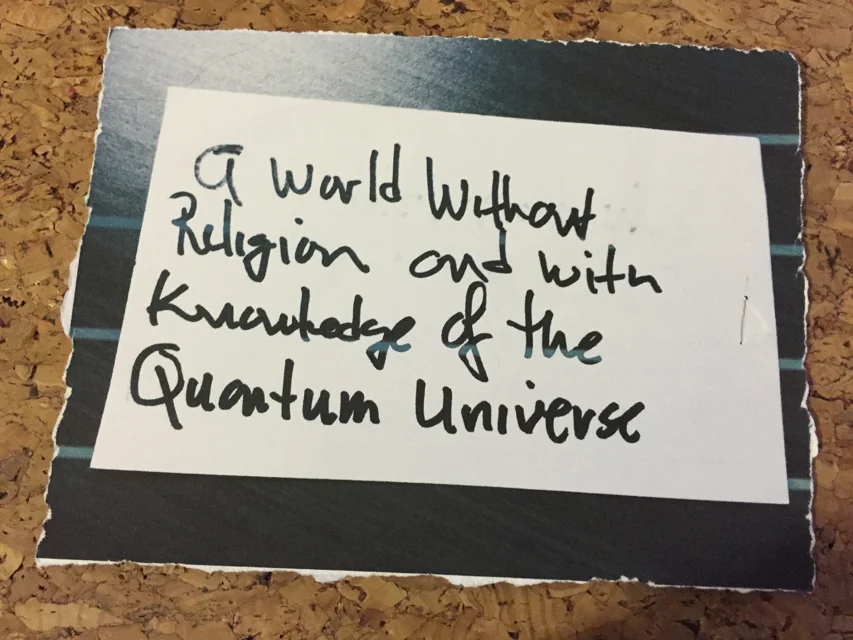 a World Without
Religion and with
Knowledge of the
Quantum Universe